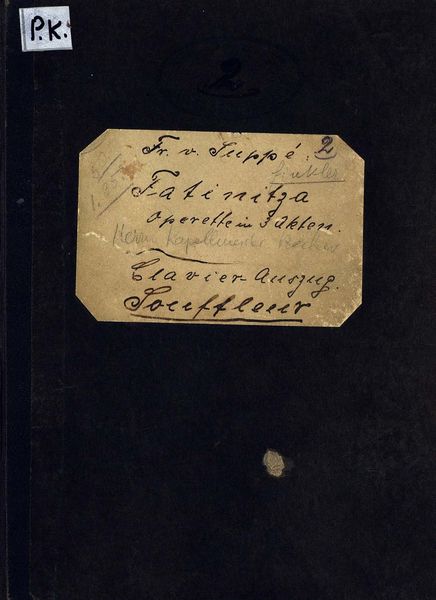 P.K.
2
Fr. v. Suppé. 2
Fatinitza
Operette in 3 Akten.
Herrn Kapellmeister
Clavier Auszug.
Souffleur